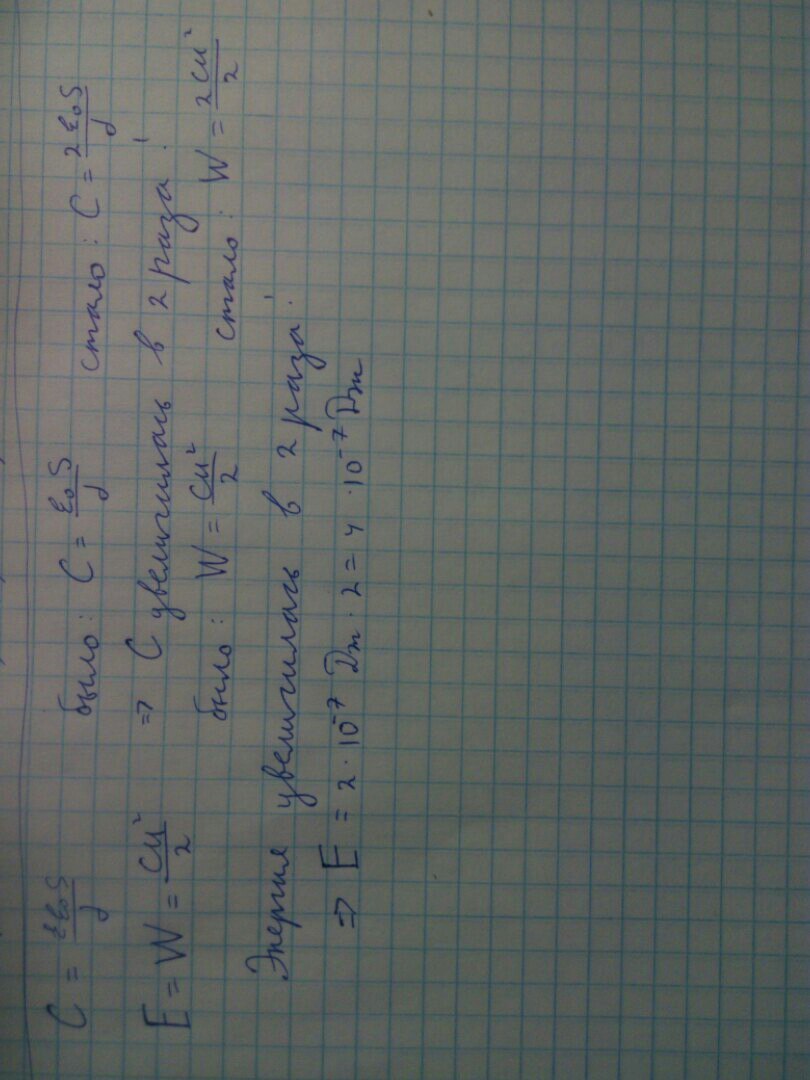 C = εε₀S/d было: C = ε₀S/d стало: C = 2ε₀S/d
E = W = CU²/2 ⇒ C увеличилась в 2 раза.
было: W = CU²/2 стало: W = 2CU²/2
Энергия увеличилась в 2 раза.
⇒ E = 2·10⁻⁷ Дж · 2 = 4·10⁻⁷ Дж